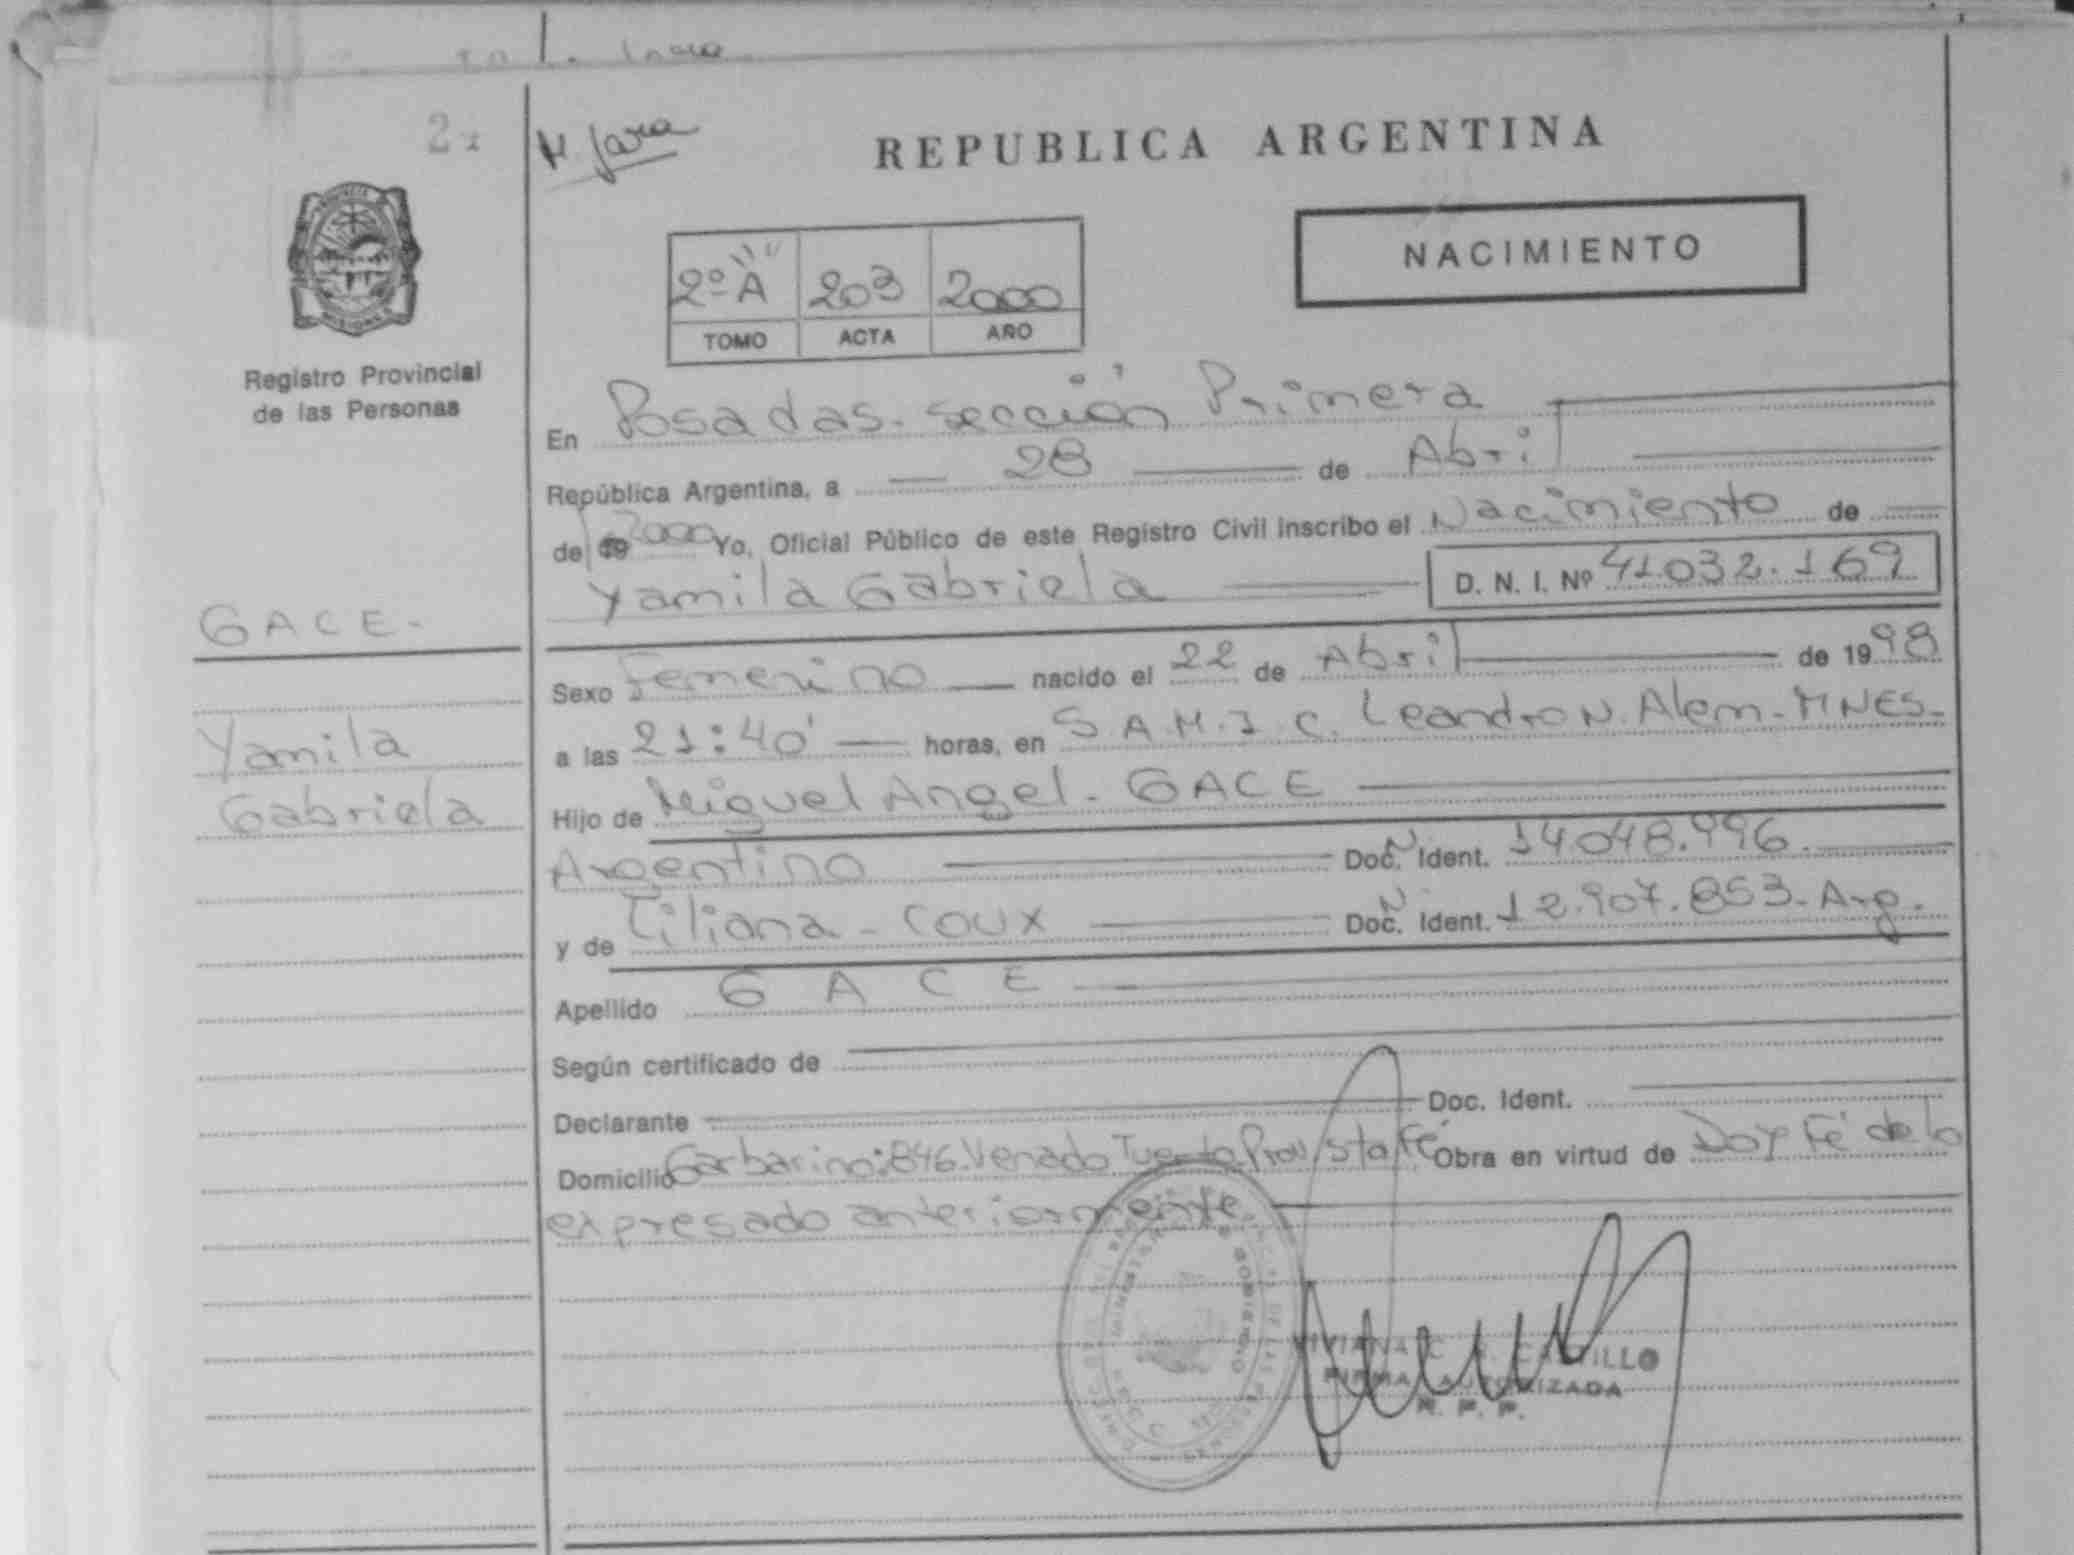 REPUBLICA ARGENTINA
NACIMIENTO
2º "A" 203 2000
TOMO ACTA AÑO
Registro Provincial
de las Personas
En Posadas. sección Primera
República Argentina, a 28 de Abril
de 19 2000 Yo, Oficial Público de este Registro Civil inscribo el Nacimiento de
Yamila Gabriela D. N. I. Nº 41.032.169
GACE.
Yamila
Gabriela
Sexo Femenino nacido el 22 de Abril de 1998
a las 21:40' horas, en S.A.M.I.C. Leandro N. Alem - MNES-
Hijo de Miguel Angel - GACE
Argentino Doc. Ident. 14.048.996.
y de Liliana - COUX Doc. Ident. 12.907.853- Arg.
Apellido GACE
Según certificado de
Declarante Doc. Ident.
Domicilio Garbarino: 846. Venado Tuerto Prov. Sta Fé Obra en virtud de Doy Fé de lo
expresado anteriormente
FIRMA AUTORIZADA
R. P. P.